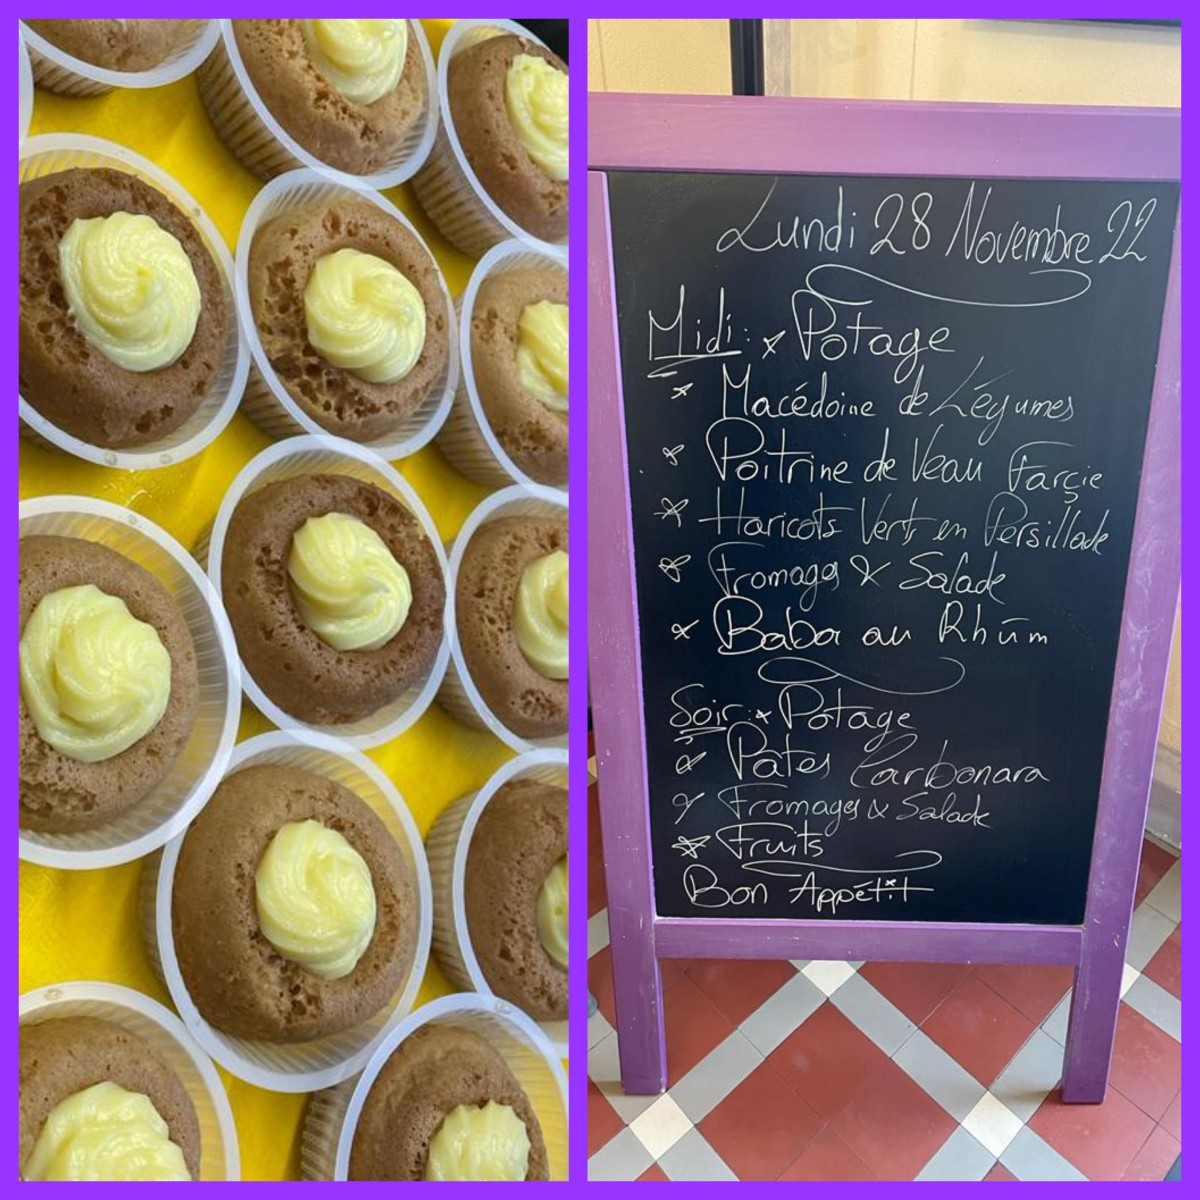 Lundi 28 Novembre 22
Midi: x Potage
x Macédoine de Légumes
x Poitrine de Veau Farçie
x Haricots Verts en Persillade
x Fromages & Salade
x Baba au Rhum
Soir: x Potage
x Pates Carbonara
x Fromages & Salade
x Fruits
Bon Appétit